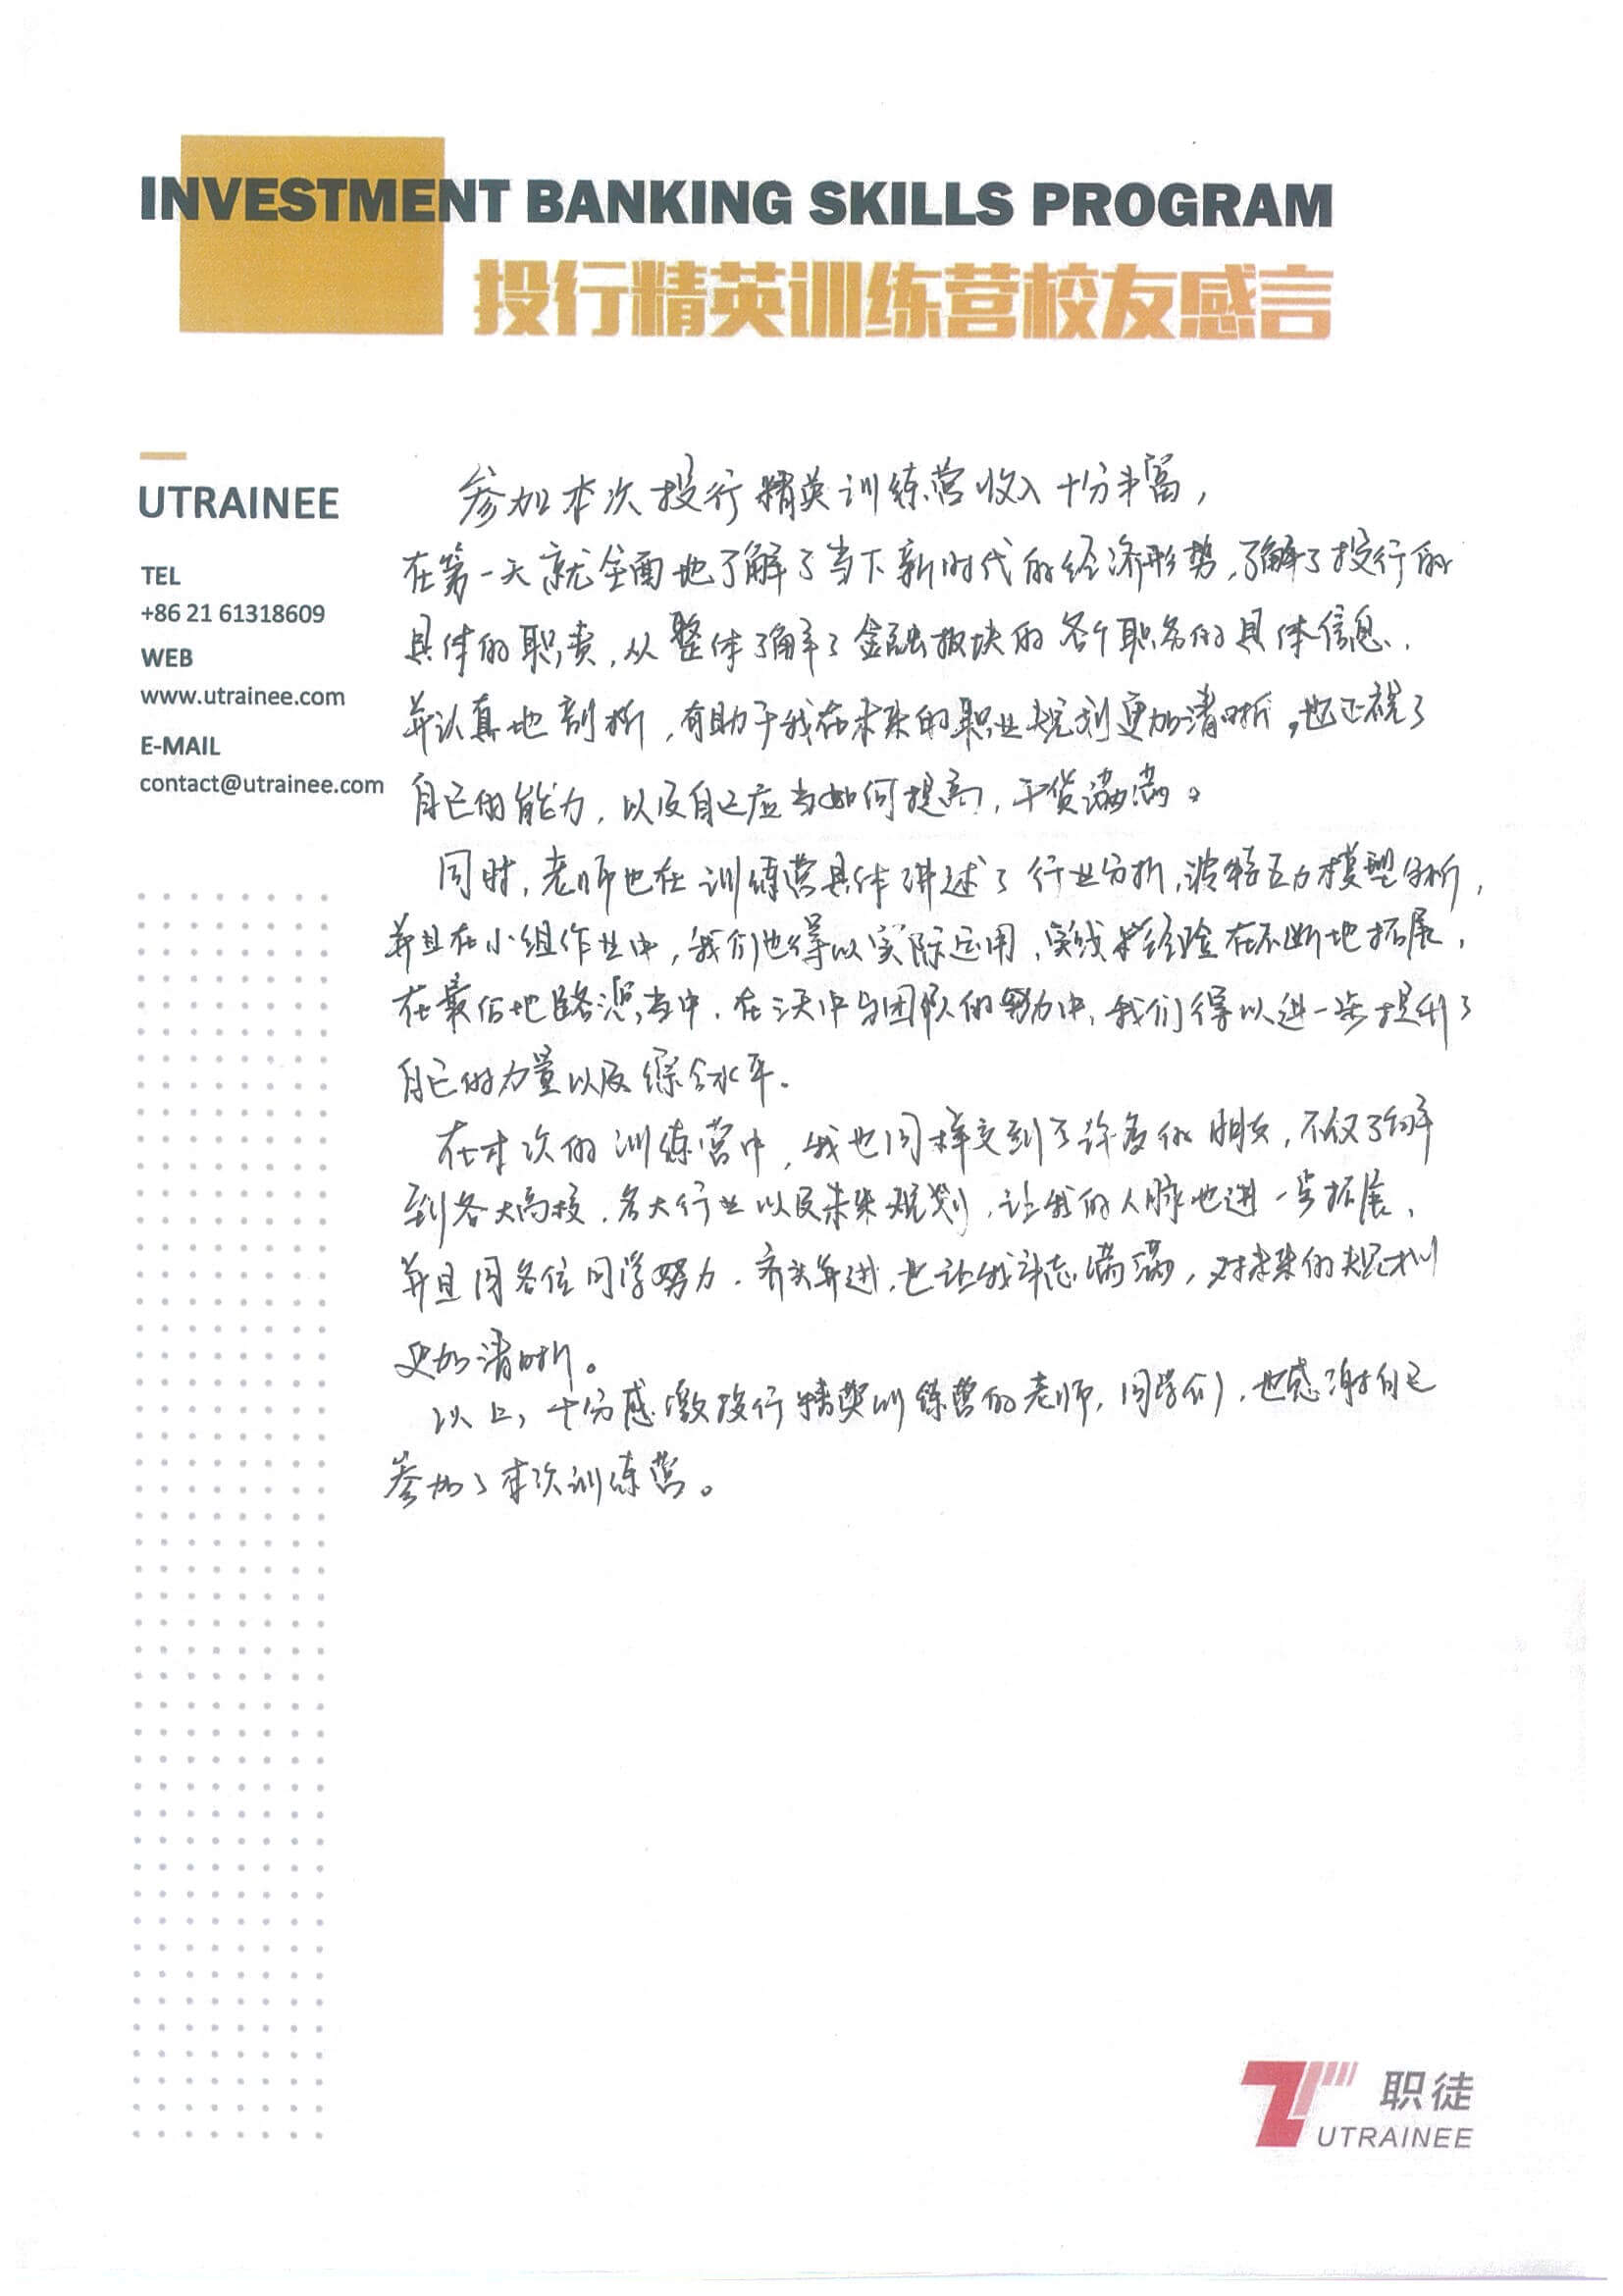 INVESTMENT BANKING SKILLS PROGRAM
投行精英训练营校友感言
UTRAINEE
TEL
+86 21 61318609
WEB
www.utrainee.com
E-MAIL
contact@utrainee.com
参加本次投行精英训练营收入十分丰富，
在第一天就全面地了解了当下新时代的经济形势，了解了投行的
具体的职责，从整体了解了金融板块的各个职务的具体信息，
并认真地剖析，有助于我在未来的职业规划更加清晰，也正视了
自己的能力，以及自己应当如何提高，干货满满。
同时，老师也在训练营具体讲述了行业分析，波特五力模型分析，
并且在小组作业中，我们也得以实际运用，实践经验在不断地拓展，
在最后地路演当中，在三天中与团队的努力中，我们得以进一步提升了
自己的力量以及综合水平。
在本次的训练营中，我也同样交到了许多的朋友，不仅了解
到各大高校，各大行业以及未来规划，让我的人脉也进一步拓展，
并且同各位同学努力，齐头并进，也让我斗志满满，对未来的规划
更加清晰。
以上，十分感激投行精英训练营的老师，同学们，也感谢自己
参加了本次训练营。
职徒
UTRAINEE